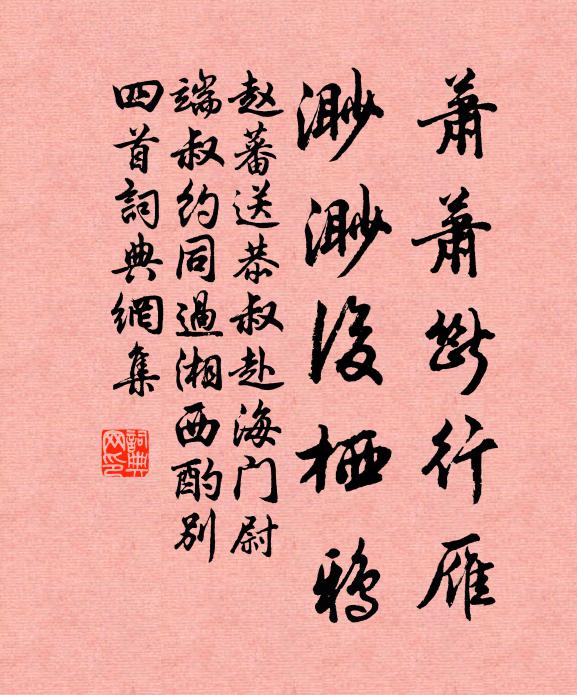 萧萧断行雁
渺渺没栖鸦
赵蕃送恭叔赴海门尉
端叔约同过湘西酌别
四首词典網集
詞典网印